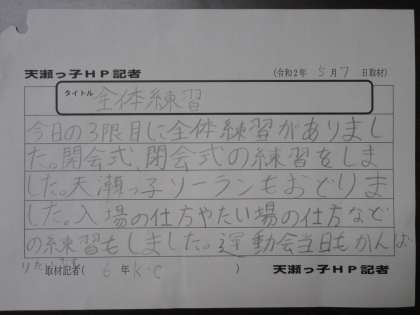 天瀬っ子HP記者
(令和2年 5月7日取材)
タイトル 全体練習
今日の3限目に全体練習がありまし
た。開会式、閉会式の練習をしま
した。天瀬っ子ソーランもおどりま
した。入場の仕方やたい場の仕方など
の練習もしました。運動会当日もがんば
りたいです。
取材記者( 6年 K・C )
天瀬っ子HP記者